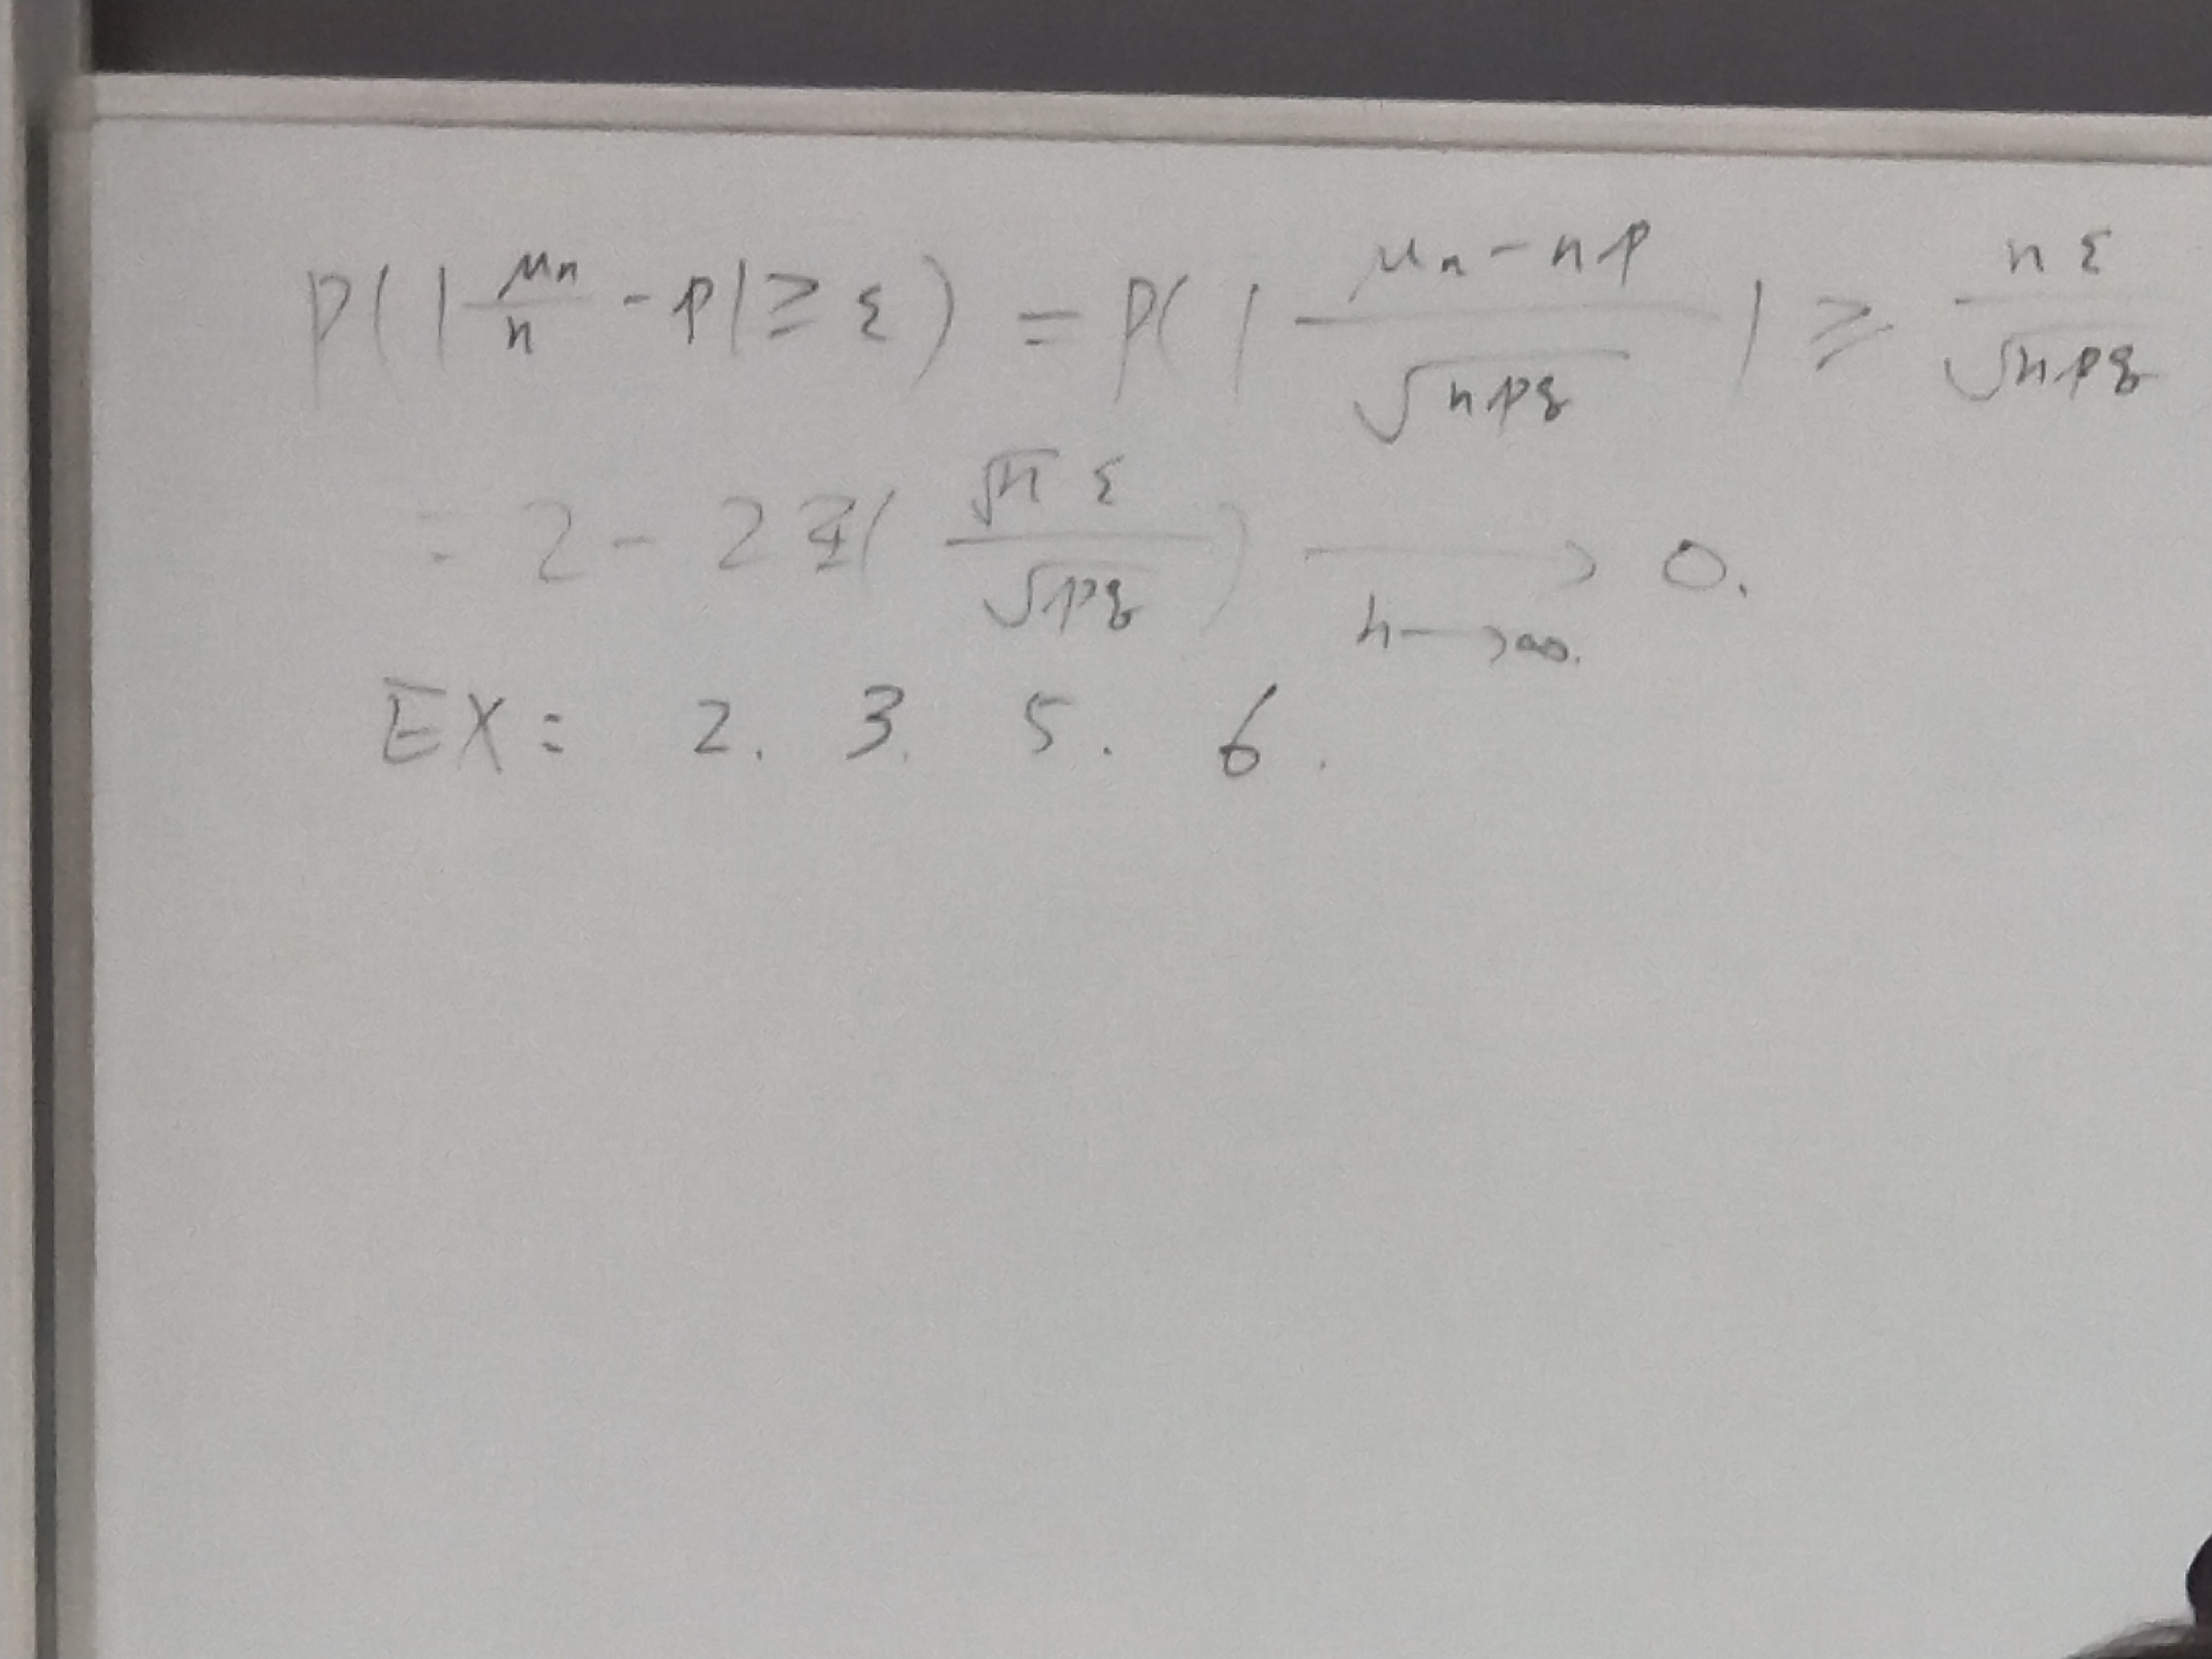 P(|μn/n - p| ≥ ε) = P(|(μn - np)/√(npq)| ≥ nε/√(npq)
= 2 - 2Φ(√n ε/√(pq)) ⟶ 0. n→∞.
EX: 2. 3. 5. 6.